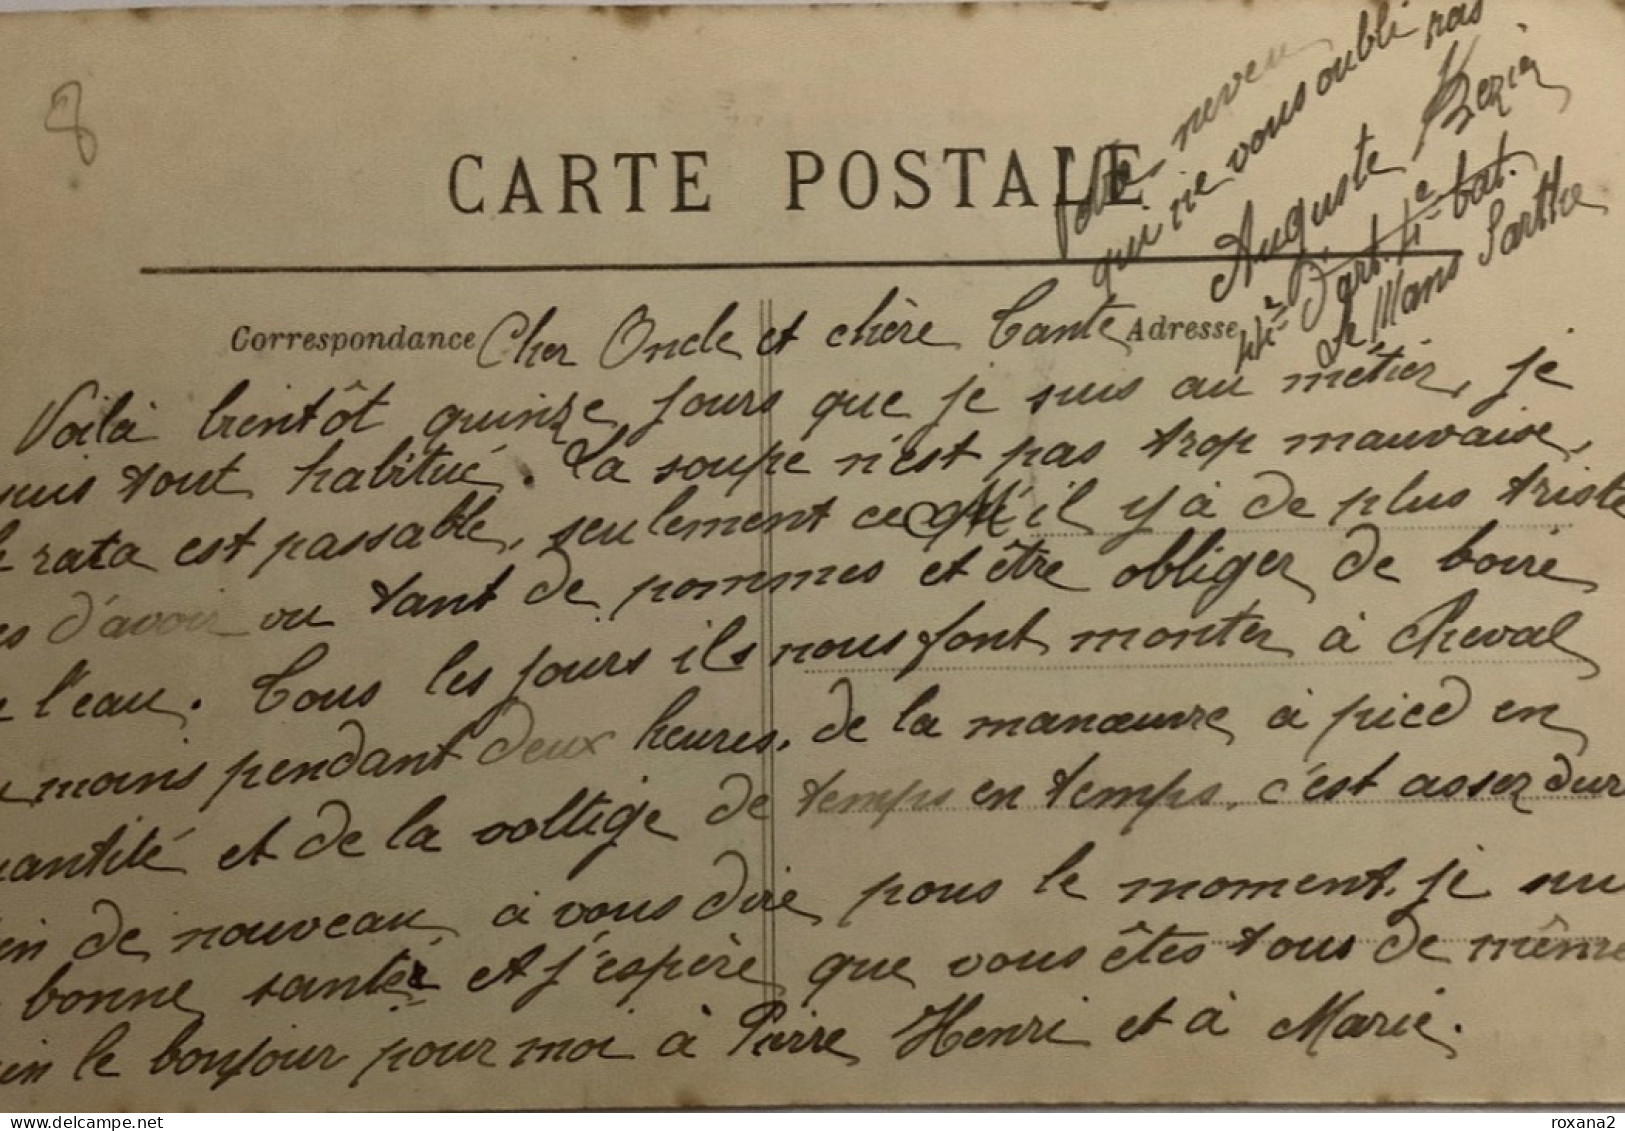 8
CARTE POSTALE
Correspondance
Adresse
Cher Oncle et chère Tante
Voilà bientôt quinze jours que je suis au métier, je
suis tout habitué. La soupe n'est pas trop mauvaise,
rata est passable, seulement ce qu'il y à de plus triste
d'avoir vu tant de pommes et être obliger de boire
l'eau. Tous les jours ils nous font monter à cheval
moins pendant deux heures, de la manœuvre à pied en
quantité et de la voltige de temps en temps, c'est assez dur
de nouveau à vous dire pous le moment, je sui
bonne santé et j'espère que vous êtes tous de même
le bonjour pour moi à Pierre Henri et à Marie.
neveu
qui ne vous oubli ras
Auguste
d'art. 4e bat.
Le Mans Sarthe
roxana2
delcampe.net